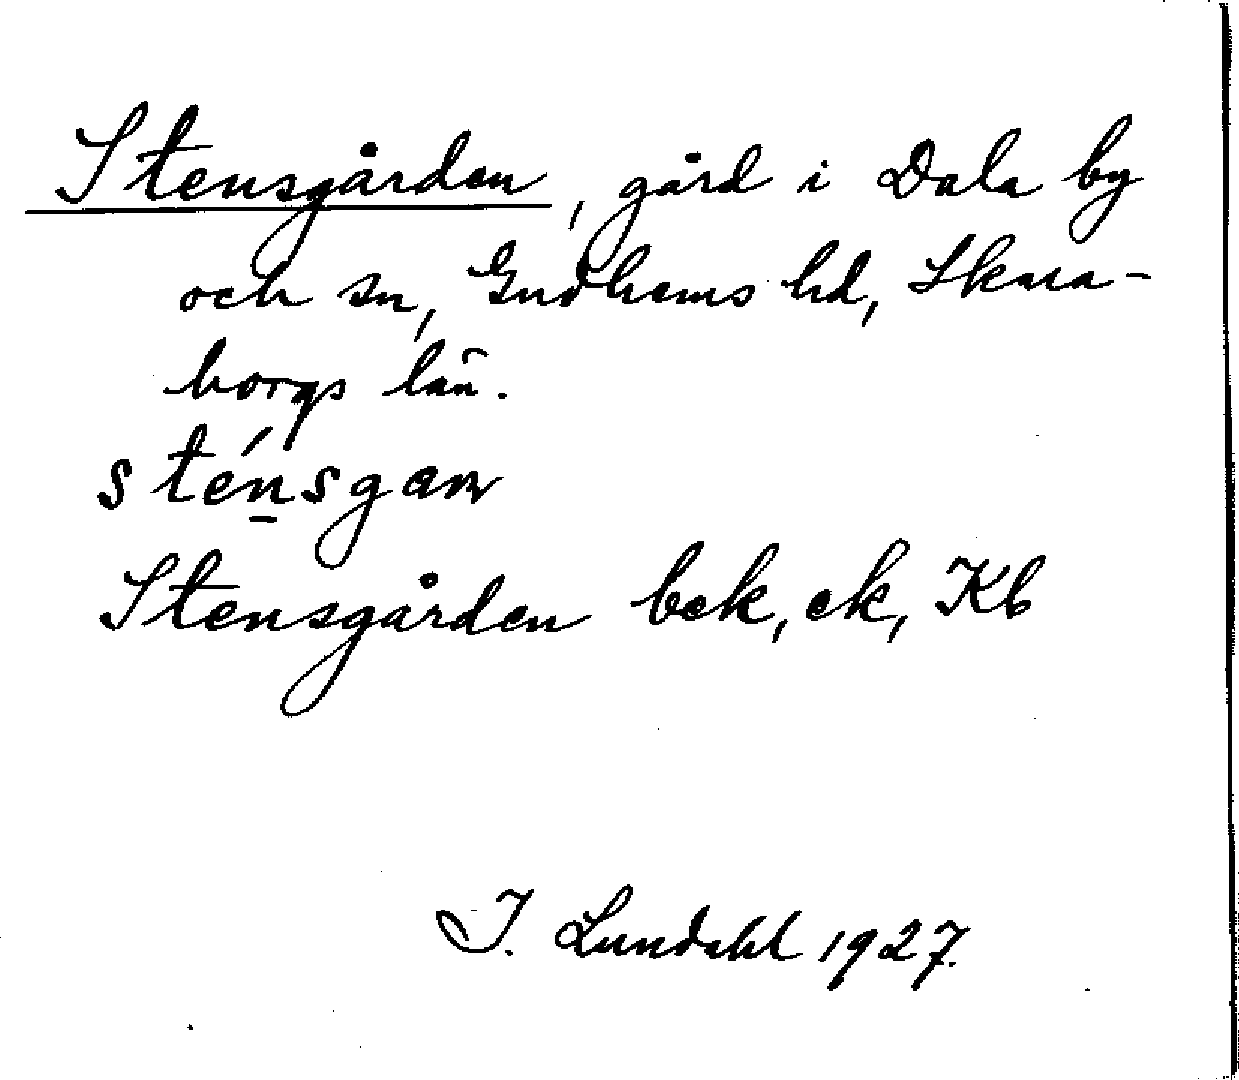 Stensgården, gård i Dala by
och sn, Gudhems hd, Skara-
borgs län.
sténsgaɳ
Stensgården bek, ek, Kb
I. Lundahl 1927.